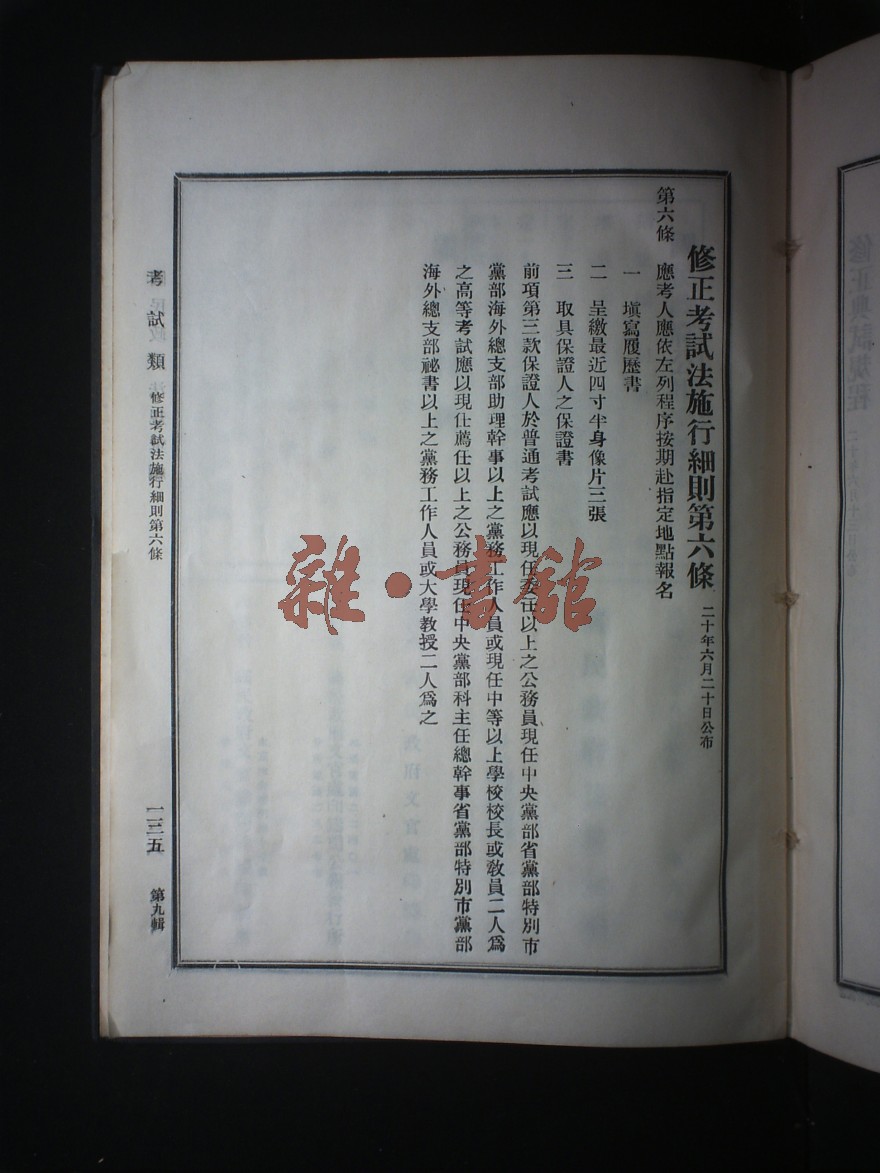 修正考試法施行細則第六條 二十年六月二十日公布
第六條 應考人應依左列程序按期赴指定地點報名
一 塡寫履歷書
二 呈繳最近四寸半身像片三張
三 取具保證人之保證書
前項第三款保證人於普通考試應以現任委任以上之公務員現任中央黨部省黨部特別市
黨部海外總支部助理幹事以上之黨務工作人員或現任中等以上學校校長或敎員二人爲
之高等考試應以現仕薦任以上之公務員現任中央黨部科主任總幹事省黨部特別市黨部
海外總支部祕書以上之黨務工作人員或大學教授二人爲之
考試類 修正考試法施行細則第六條
一三五 第九輯
雜·書館